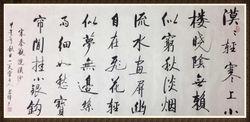 漠〻輕寒上小
樓曉陰無賴
似窮秋淡烟
流水畫屏幽
自在飛花輕
似夢無邊絲
雨細如愁寶
簾閒掛小銀鈎
宋秦觀浣溪沙